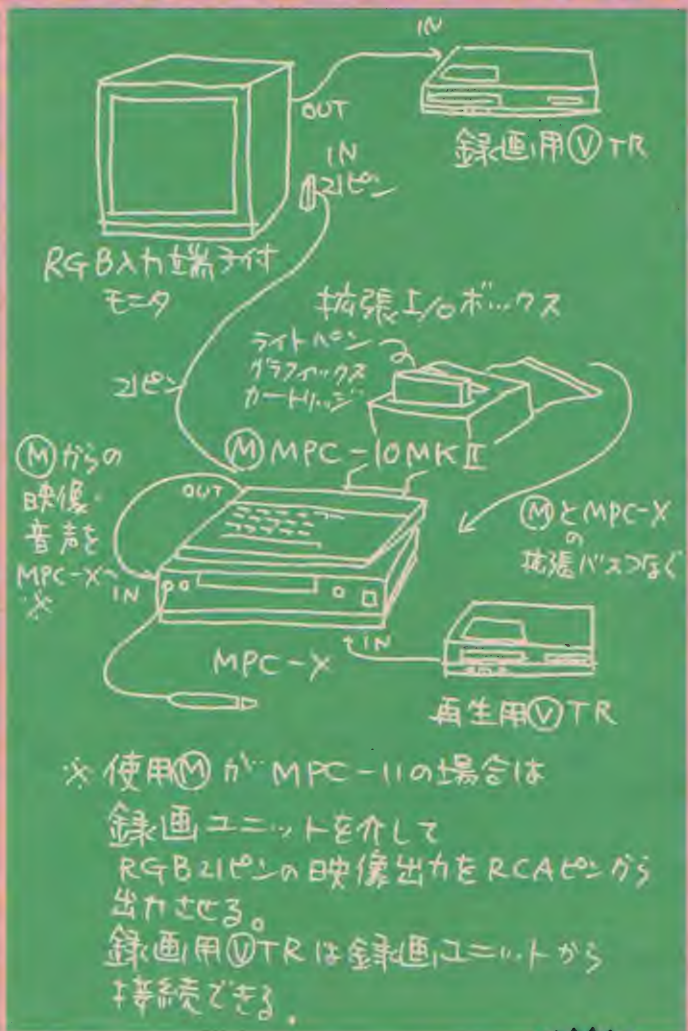 IN
OUT
録画用ⓋTR
IN
21ピン
RGB入力端子付
モニタ
拡張I/Oボックス
ライトペン
グラフィックス
カートリッジ
21ピン
ⓂMPC-10MKⅡ
Ⓜからの
映像・
音声を
MPC-Xへ
※
OUT
IN
ⓂとMPC-X
の
拡張バスつなぐ
MPC-X
IN
再生用ⓋTR
※使用ⓂがMPC-11の場合は
録画ユニットを介して
RGB21ピンの映像出力をRCAピンから
出力させる。
録画用ⓋTRは録画ユニットから
接続できる.